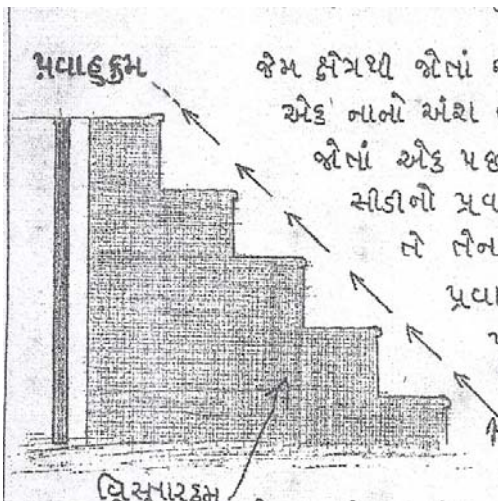 પ્રવાહક્રમ
જેમ ક્ષેત્રથી જોતાં
એક નાનો અંશ
જોતાં એક પછ
સીડીનો પ્રવ
તે તેન
પ્રવા
વિસ્તારક્રમ